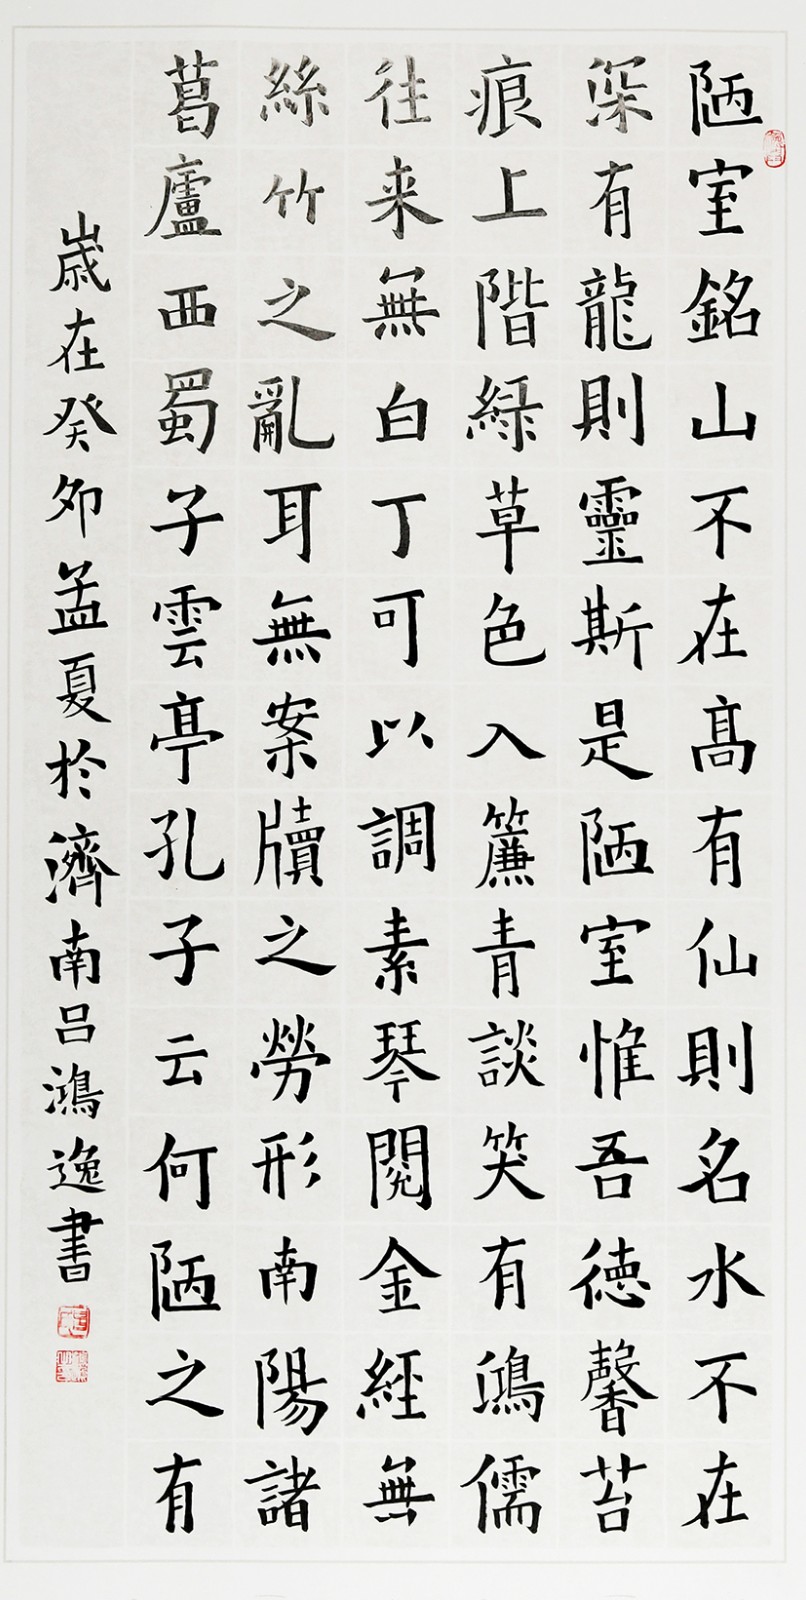 陋室銘山不在高有仙則名水不在
深有龍則靈斯是陋室惟吾德馨苔
痕上階緑草色入簾青談笑有鴻儒
往来無白丁可以調素琴閱金經無
絲竹之亂耳無案牘之勞形南陽諸
葛廬西蜀子雲亭孔子云何陋之有
歲在癸卯孟夏於濟南吕鴻逸書